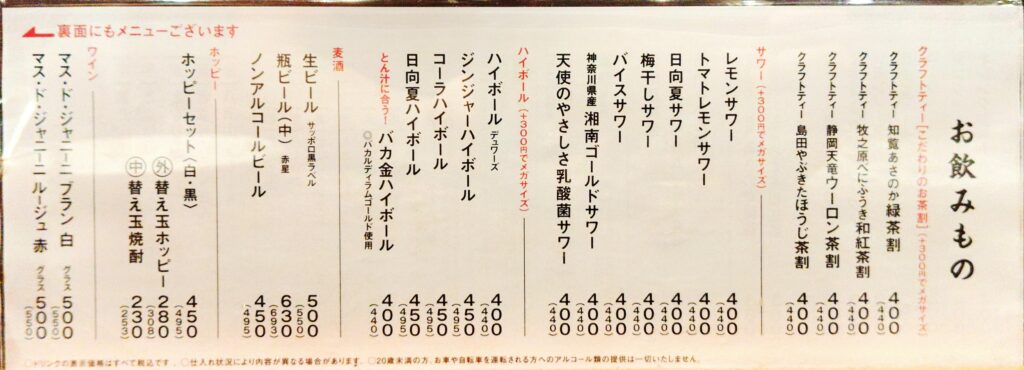 お飲みもの
クラフトティー【こだわりのお茶割】(+300円でメガサイズ)
クラフトティー 知覧あさのか 緑茶割 400 (440)
クラフトティー 牧之原べにふうき 和紅茶割 400 (440)
クラフトティー 静岡天竜ウーロン茶割 400 (440)
クラフトティー 島田やぶきたほうじ茶割 400 (440)
サワー(+300円でメガサイズ)
レモンサワー 400 (440)
トマトレモンサワー 400 (440)
日向夏サワー 400 (440)
梅干しサワー 400 (440)
バイスサワー 400 (440)
神奈川県産 湘南ゴールドサワー 400 (440)
天使のやさしさ乳酸菌サワー 400 (440)
ハイボール(+300円でメガサイズ)
ハイボール デュワーズ 400 (440)
ジンジャーハイボール 450 (495)
コーラハイボール 450 (495)
日向夏ハイボール 450 (495)
とん汁に合う! バカ金ハイボール 400 (440)
◎バカルディラムゴールド使用
麦酒
生ビール サッポロ黒ラベル 500 (550)
瓶ビール(中) 赤星 630 (693)
ノンアルコールビール 450 (495)
ホッピー
ホッピーセット〈白・黒〉 450 (495)
外 替え玉ホッピー 280 (308)
中 替え玉焼酎 230 (253)
ワイン
マス・ド・ジャニーニ ブラン 白 グラス 500 (550)
マス・ド・ジャニーニ ルージュ 赤 グラス 500 (550)
裏面にもメニューございます
○ドリンクの表示価格はすべて税込です。○仕入れ状況により内容が異なる場合があります。○20歳未満の方、お車や自転車を運転される方へのアルコール類の提供は一切いたしません。